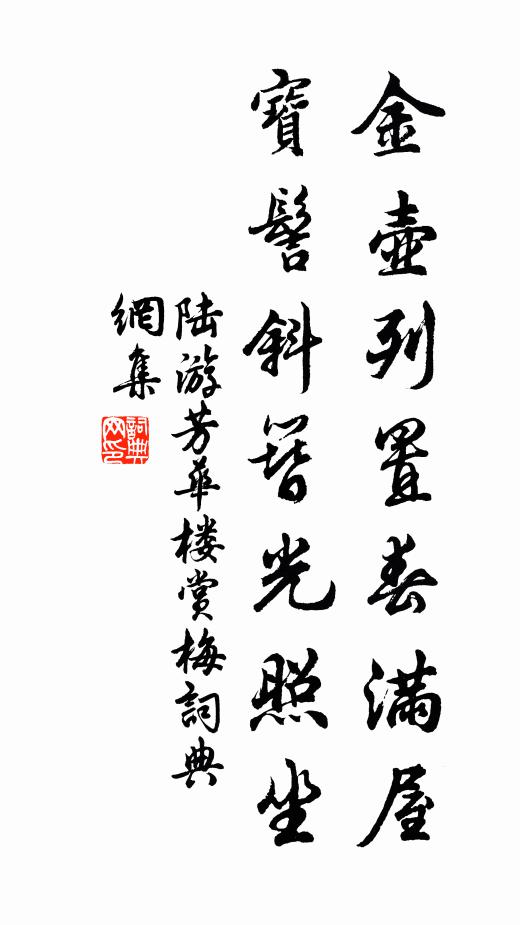 金壺列置春滿屋
寶髻斜簪光照坐
陆游芳華楼賞梅詞典
網集
詞典网印